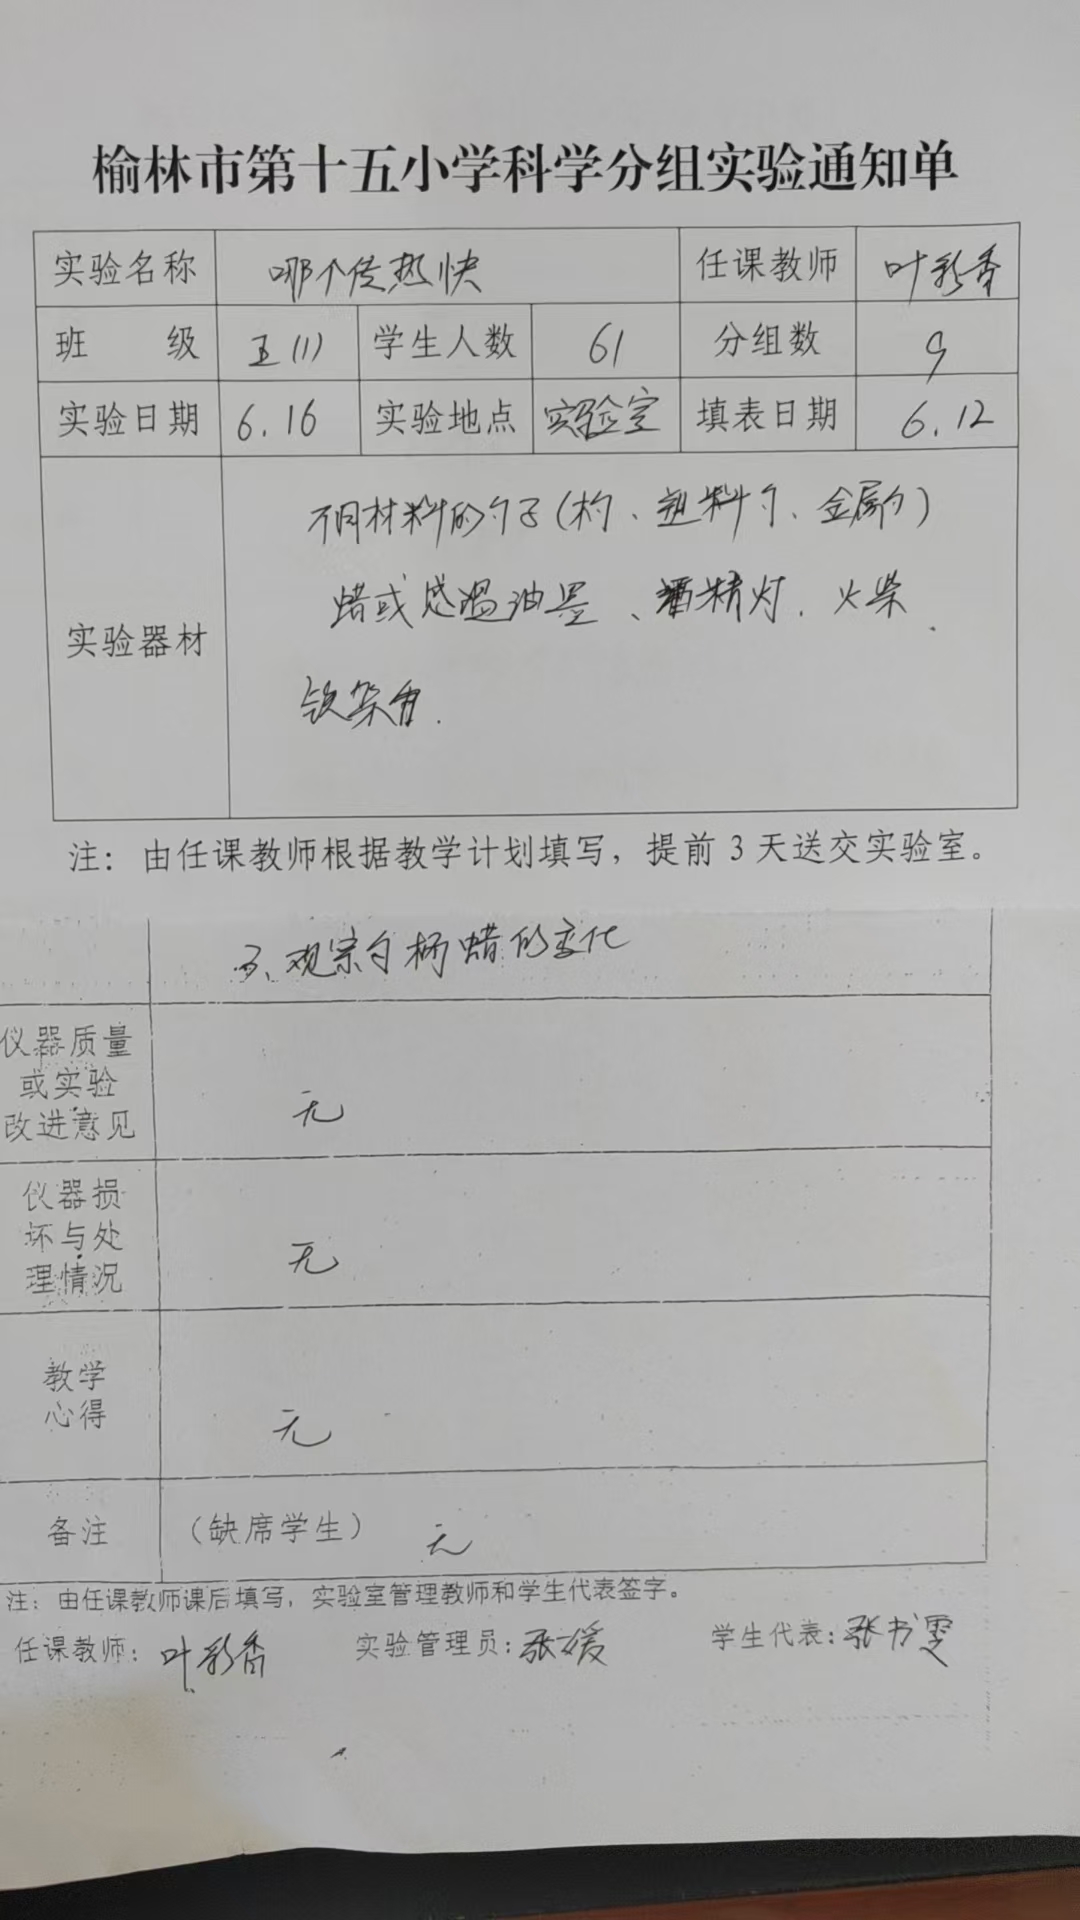 榆林市第十五小学科学分组实验通知单
实验名称 哪个传热快 任课教师 叶彩香
班 级 五(1) 学生人数 61 分组数 9
实验日期 6.16 实验地点 实验室 填表日期 6.12
不同材料的勺子(木勺、塑料勺、金属勺)
蜡或感温油墨、酒精灯.火柴.
实验器材
铁架台.
注：由任课教师根据教学计划填写，提前3天送交实验室。
3、观察勺柄蜡的变化
仪器质量
或实验
改进意见
无
仪器损
坏与处
理情况
无
教学
心得
无
备注 （缺席学生） 无
注：由任课教师课后填写，实验室管理教师和学生代表签字。
任课教师：叶彩香 实验管理员：张媛 学生代表：张书雯